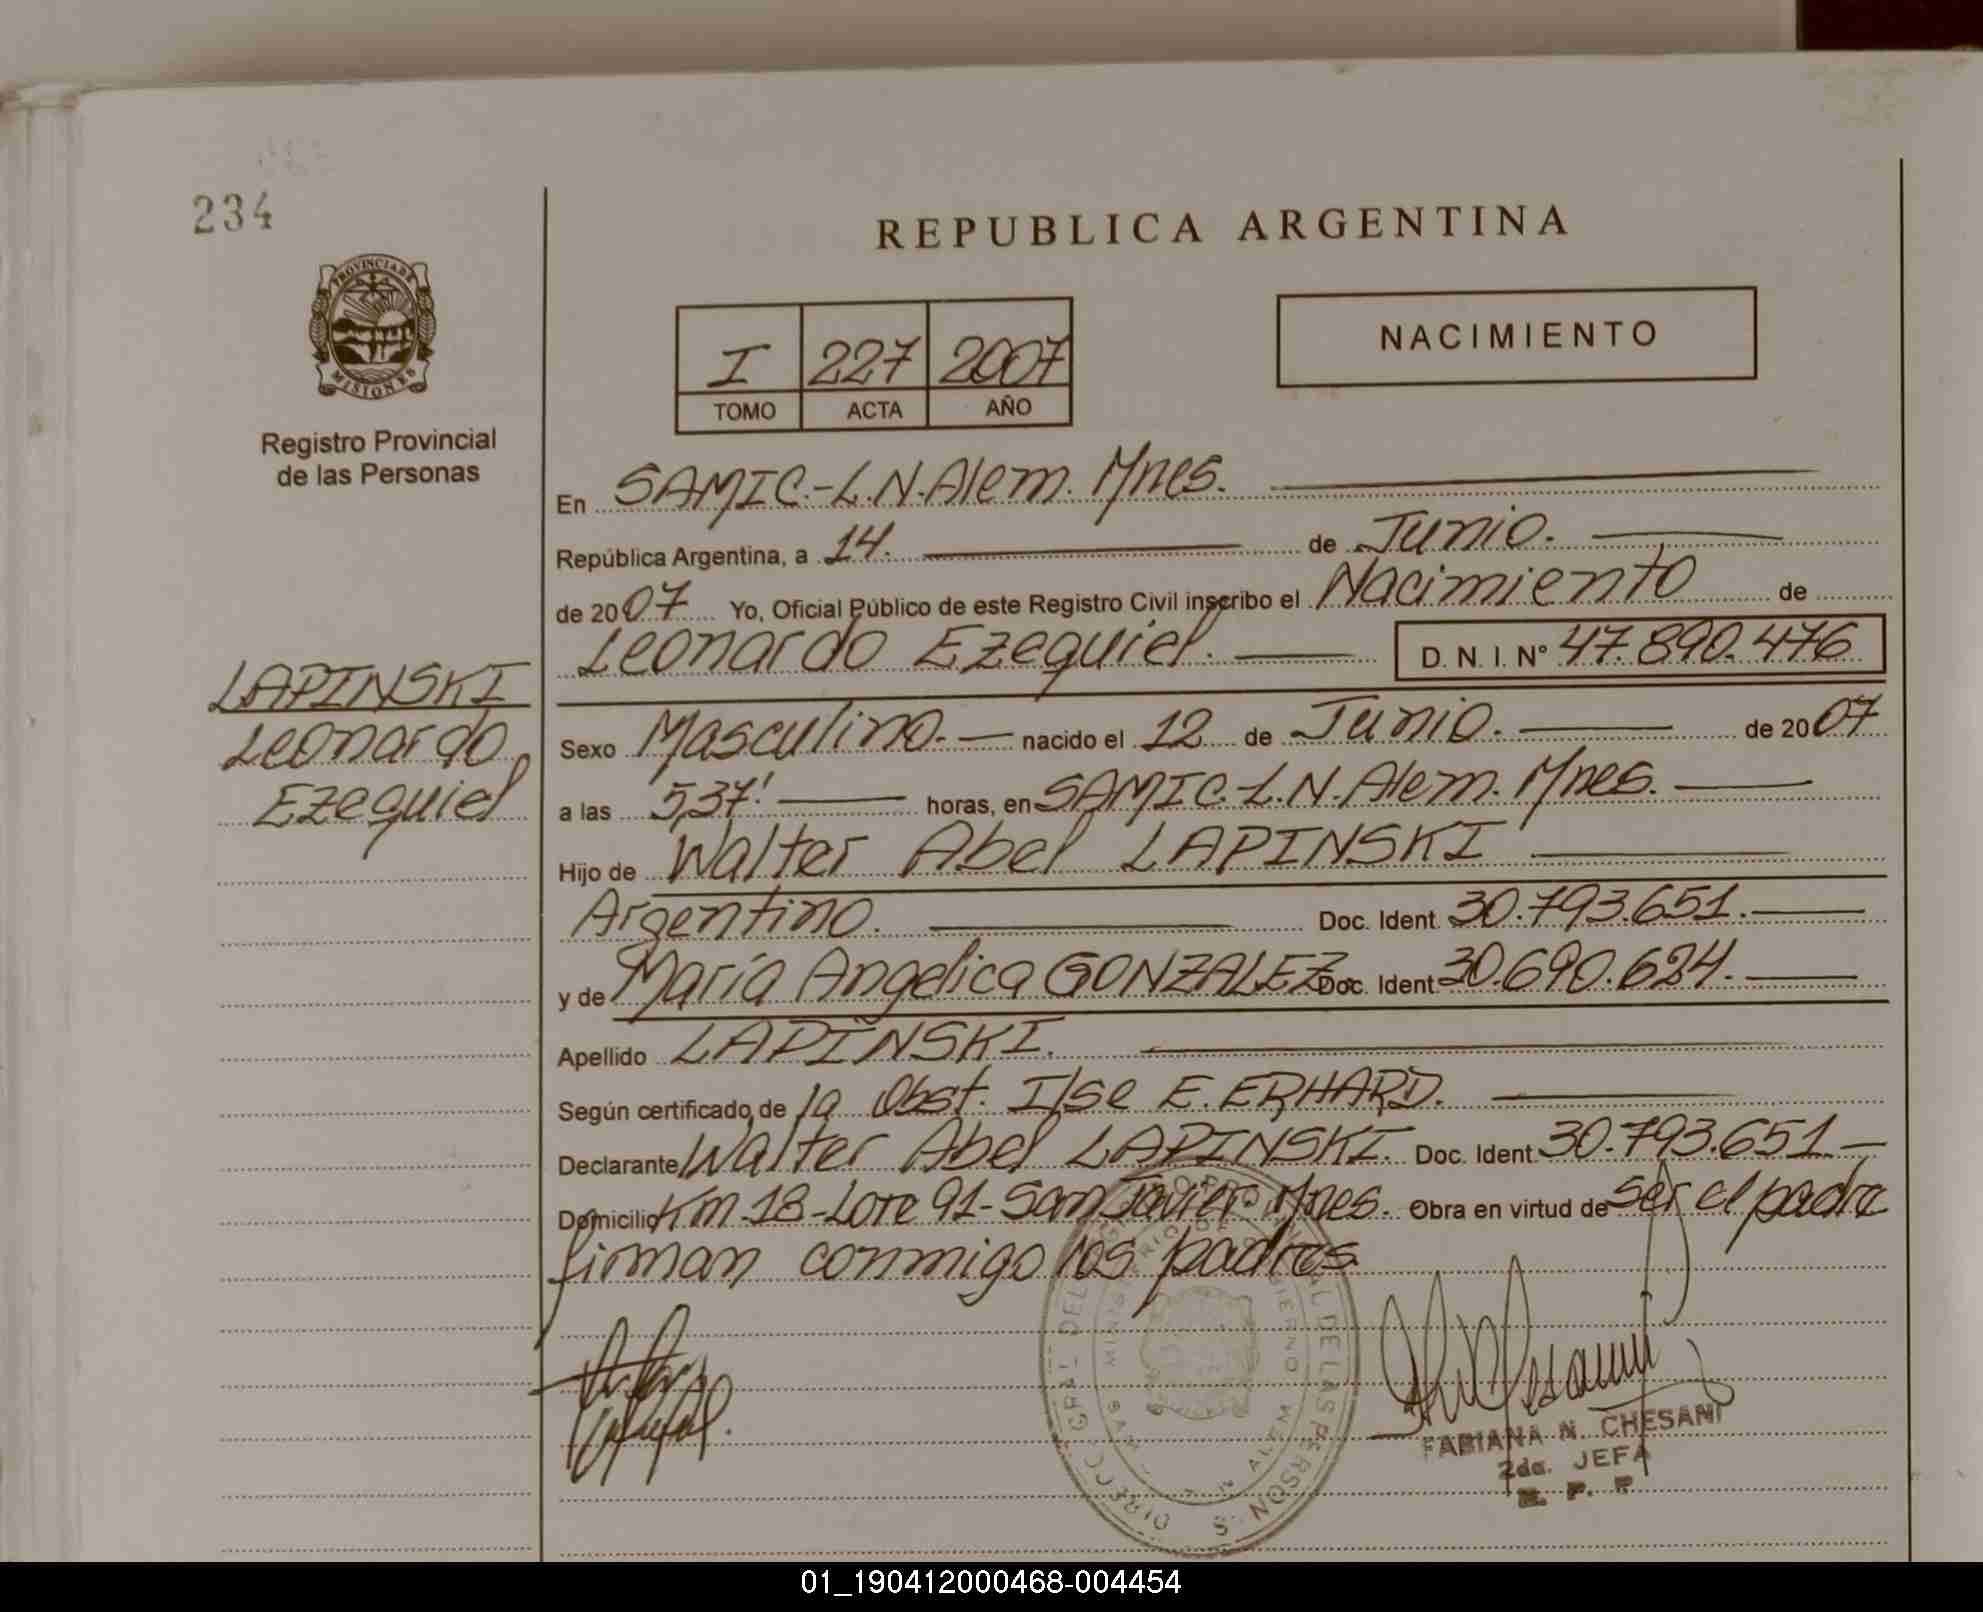 234
PROVINCIA DE
MISIONES
Registro Provincial
de las Personas
LAPINSKI
Leonardo
Ezequiel
REPUBLICA ARGENTINA
I 227 2007
TOMO ACTA AÑO
NACIMIENTO
En SAMIC.-L.N.Alem. Mnes.
República Argentina, a 14. de Junio.
de 2007 Yo, Oficial Público de este Registro Civil inscribo el Nacimiento de
Leonardo Ezequiel. D. N. I. N° 47.890.476
Sexo Masculino.- nacido el 12 de Junio. de 2007
a las 5,37' horas, en SAMIC.-L.N.Alem. Mnes.
Hijo de Walter Abel LAPINSKI
Argentino. Doc. Ident. 30.793.651.
y de María Angelica GONZALEZ Doc. Ident 30.690.624.
Apellido LAPINSKI.
Según certificado de la Obst. Ilse E. ERHARD.
Declarante Walter Abel LAPINSKI. Doc. Ident. 30.793.651.
Domicilio Km-18-Lote 91-San Javier. Mnes. Obra en virtud de ser el padre
firman conmigo los padres
FABIANA N. CHESANI
2da. JEFA
R. P. P
01_190412000468-004454